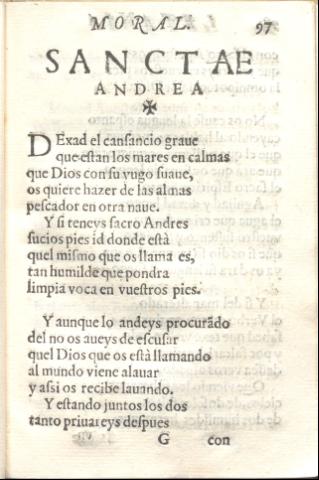 MORAL. 97
SANCTAE
ANDREA
✠
DExad el canſancio graue
que eſtan los mares en calmas
que Dios con ſu yugo ſuaue,
os quiere hazer de las almas
peſcador en otra naue.
Y ſi teneys ſacro Andres
ſucios pies id donde eſtà
quel miſmo que os llama es,
tan humilde que pondra
limpia voca en vueſtros pies.
Y aunque lo andeys procurãdo
del no os aueys de eſcuſar
quel Dios que os eſtà llamando
al mundo viene alauar
y aſsi os recibe lauando.
Y eſtando juntos los dos
tanto priuareys deſpues
G con